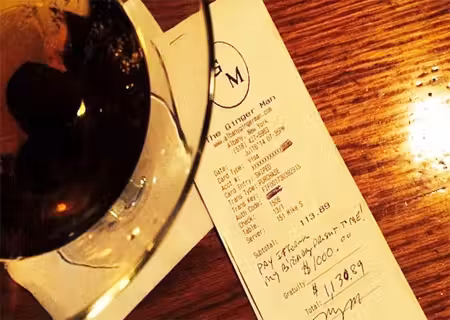 G M
The Ginger Man
www.albanygingerman.com
Albany, New York
(518) 427-5963
Date: Jul16'14 07:35PM
Card Type: Visa
Acct #: XXXXXXXXXXXX
Card Entry: SWIPED
Trans Type: PURCHASE
Trans Key:
Auth Code:
Check: 1506
Table: 13/1
Server: 151 Mike S
Subtotal: 113.89
PAY IT FORWARD
MY BIRTHDAY PRESENT TO ME!
Gratuity: $1,000.00
Total: $1,113.89